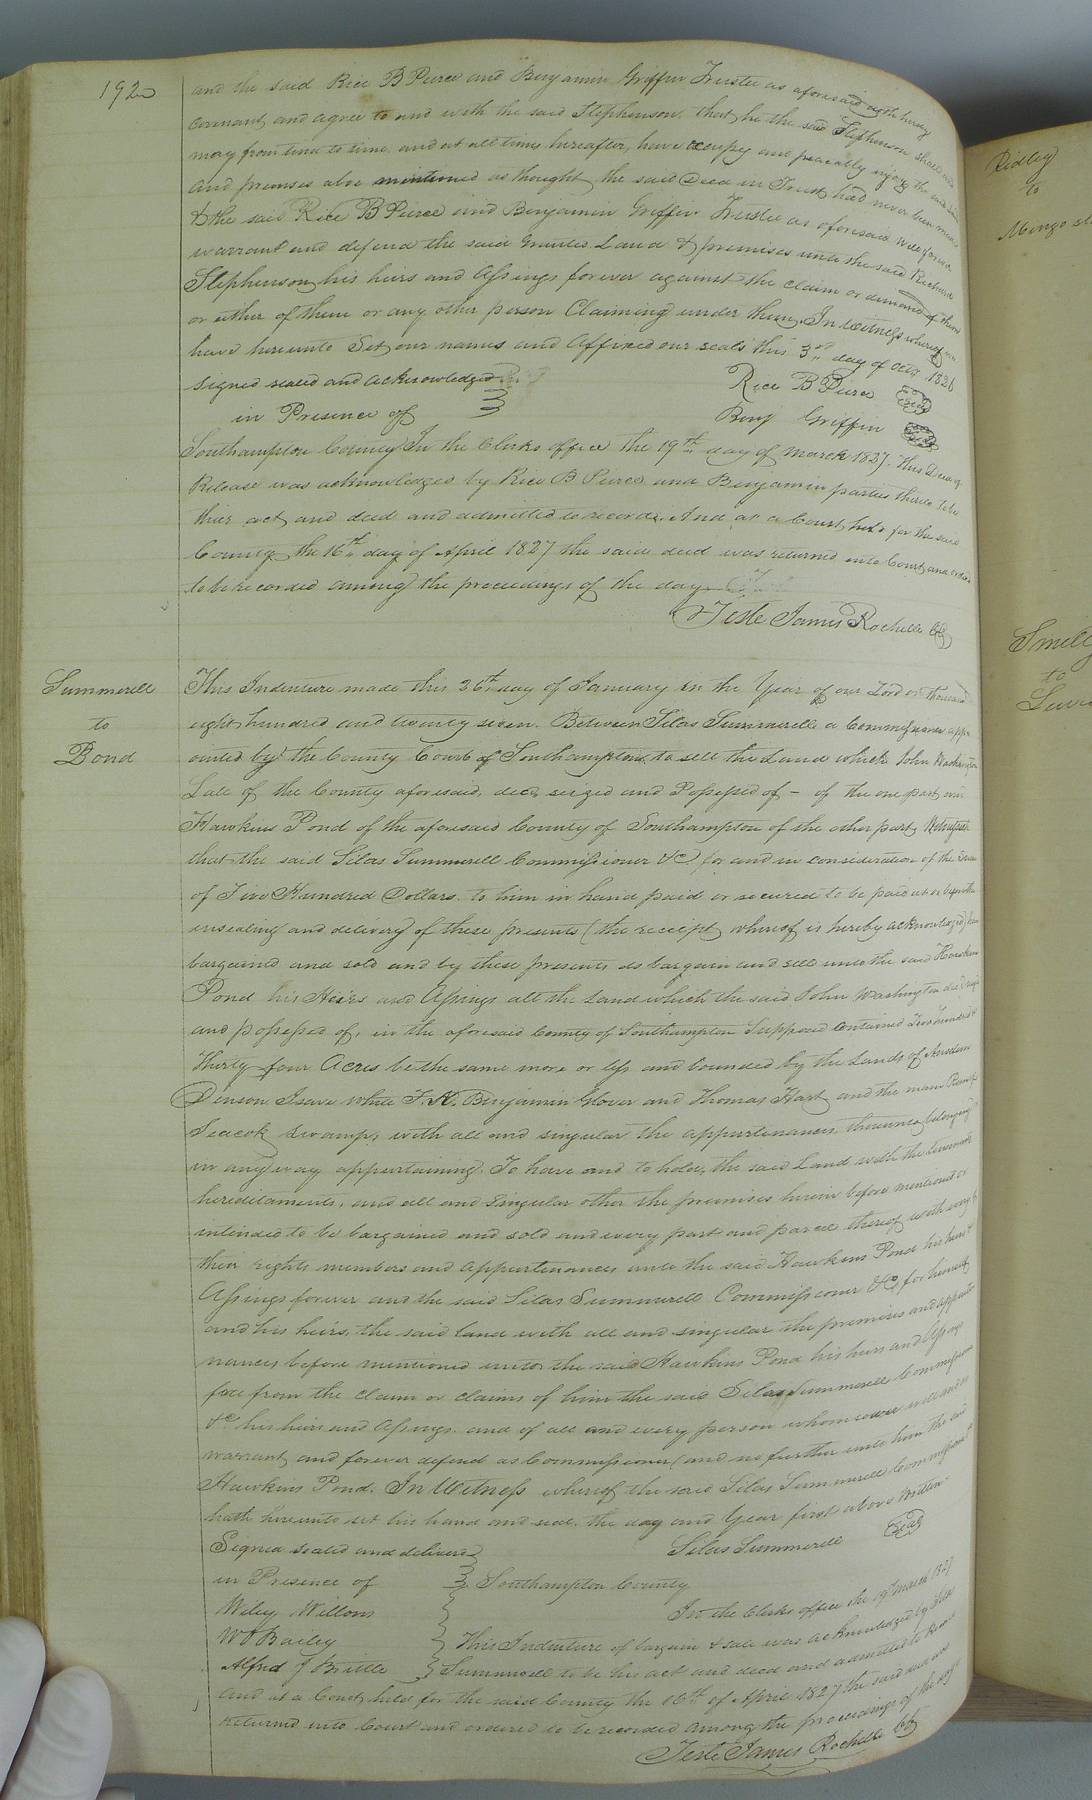 192
and the said Rice B Peirce and Benjamin Griffin Trustee as aforesaid doth hereby
Covenant and agree to and with the said Stephenson, that he the said Stephenson shall and
may from time to time, and at all times hereafter, have occupy and peacably enjoy the said Land
and premises above mentioned as thought the said Deed in Trust had never been made
& the said Rice B Peirce and Benjamin Griffin Trustee as aforesaid will forever
warrant and defend the said Granted Land & premises unto the said Richard
Stephenson his heirs and Assings forever against the claim or demand of them
or either of them or any other person Claiming under them. In witness whereof we
have hereunto Set our names and Affixed our seals this 3rd day of Octr 1826
Signed sealed and acknowledged
in Presence of
Rice B Peirce Seal
Benj Griffin Seal
Southampton County In the Clerks office the 19th day of March 1827. This Deed of
Release was acknowledged by Rice B Peirce and Benjamin parties thereto to be
thier act and deed and admitted to record. And at a Court held for the said
County the 16th day of April 1827 the said deed was returned into Court and ordered
to be recorded among the proceedings of the day
Teste James Rochelle CC
Summerell
to
Pond
This Indenture made this 26th day of January in the Year of our Lord on thousand
eight hundred and twenty seven. Between Silas Summerell a Commissioner app
ointed by the County Court of Southampton to sell the Land which John Washington
Late of the County aforesaid, decd, seized and Possessed of – of the one part and
Hawkins Pond of the aforesaid County of Southampton of the other part Witnesseth
that the said Silas Summerell Commissioner &c for and in consideration of the Sum
of Five Hundred Dollars to him in hand paid or secured to be paid at or before the
ensealing and delivery of these presents (the receipt whereof is hereby acknowledged) has
bargained and sold and by these presents do bargain and sell unto the said Hawkins
Pond his Heirs and Assings all the Land which the said John Washington decd siezd
and possessed of, in the aforesaid County of Southampton Supposed Contained Two hundred &
Thirty four Acres be the same more or less and bounded by the Lands of
Denson Isave White J. K. Benjamin Glover and Thomas Hart and the main Run of
Seacok Swamp, with all and singular the appurtenances, thereunto belonging
in any way appurtaining. To have and to hold, the said Land with the tenements
hereditaments, and all and Singular other the premises herein before mentioned or
intended to be bargained and sold and every part and parcel thereof with every
their rights members and Appurtenances unto the said Hawkins Pond his heirs &
Assings forever and the said Silas Summerell Commissioner &c for himself
and his heirs, the said land with all and singular the premises and appurte
nances before mentioned unto the said Hawkins Pond his heirs and Assings
free from the claim or claims of him the said Silas Summerell Commissioner
&c his heirs and Assings. and of all and every person whomsoever will and do
warrant and forever defend as Commissioner (and no further unto him the said
Hawkins Pond. In Witness whereof the said Silas Summerell Commissioner
hath hereunto set his hand and seal the day and Year first above Written
Signed sealed and delivered
Silas Summerell Seal
in Presence of
Southampton County
Wiley Willons
In the Clerks office the 19th March 1827
W P Bailey
This Indenture of bargain & sale was acknowledged by Silas
Alfred J Brittle
Summerell to be his act and deed and admitted to Record
And at a Court held for the said County the 16th of April 1827 the said deed was
returned into Court and ordered to be recorded among the proceedings of the day
Teste James Rochelle CC
Ridley
to
Mingo
to